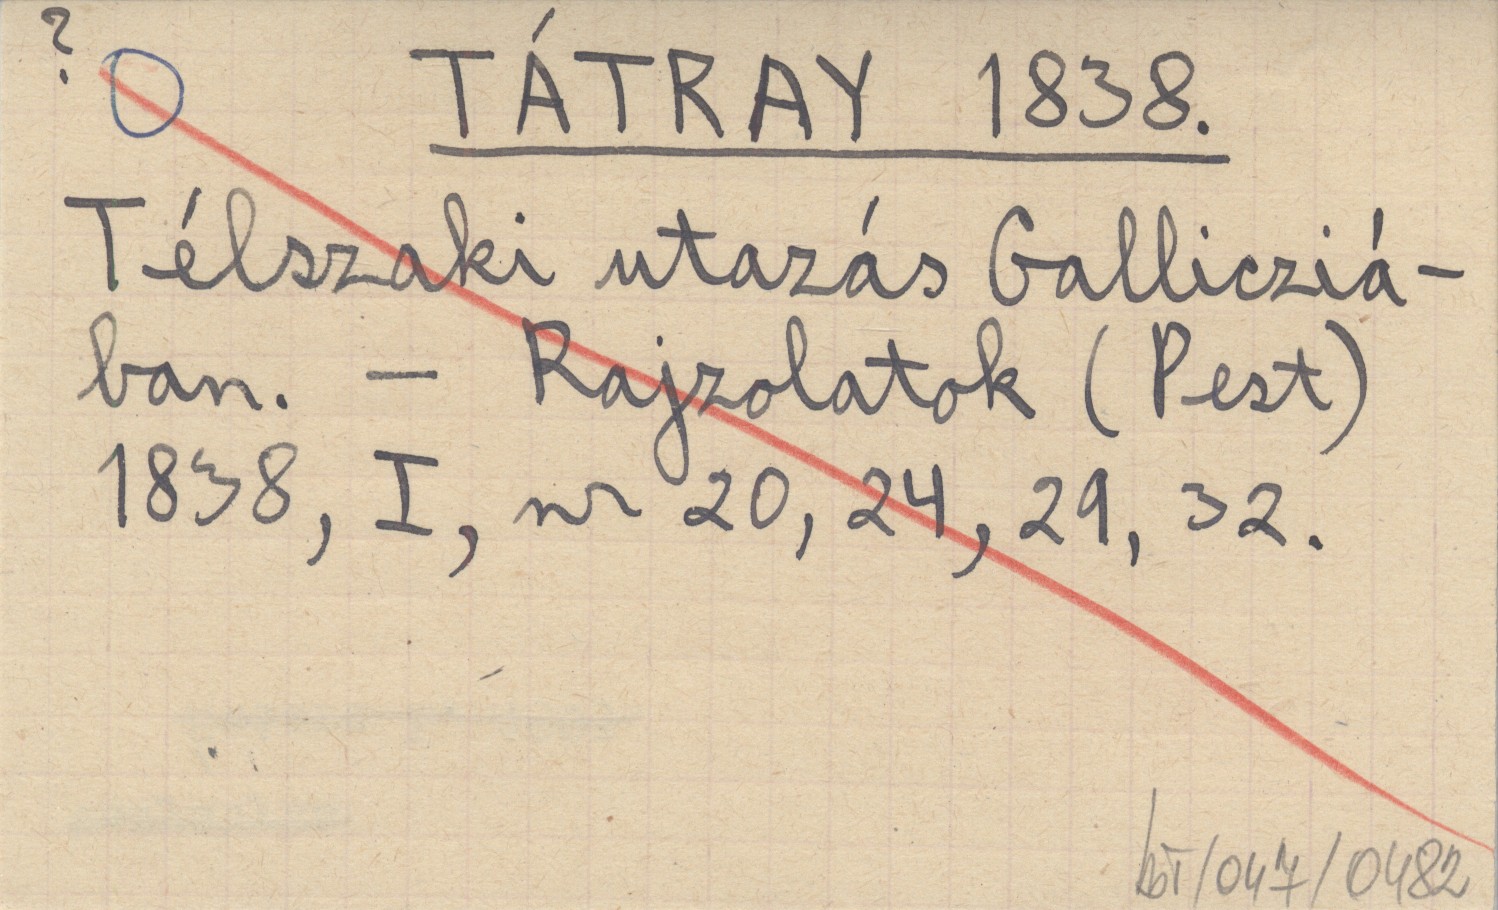 ?
TÁTRAY 1838.
Télszaki utazás Gallicziá-
ban. — Rajzolatok (Pest)
1838, I, nr 20, 24, 29, 32.
/047/0482